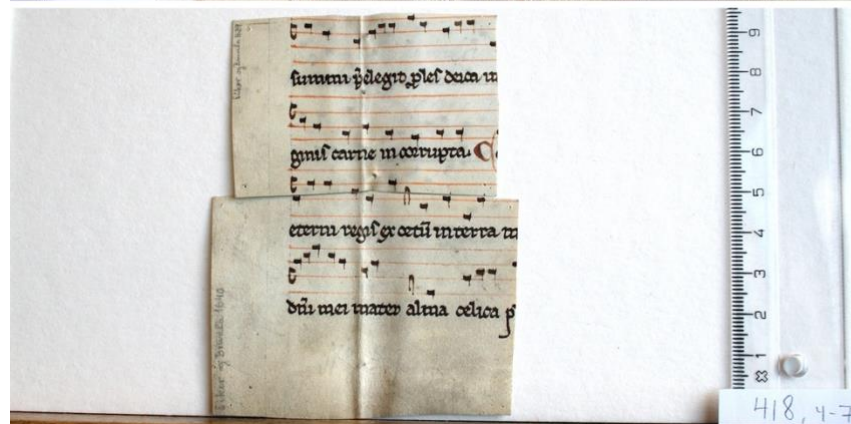 summi p̄elegit ꝓles deica ui
ginis carne in corrupta. C
eterni regis ex cetū in terra m
dn̄i mei mater alma celica p̄
9
8
7
6
5
4
3
2
1
418, 4-7